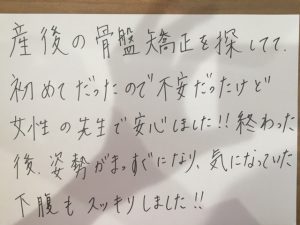 産後の骨盤矯正を探してて、
初めてだったので不安だったけど
女性の先生で安心しました!!終わった
後、姿勢がまっすぐになり、気になっていた
下腹もスッキリしました!!